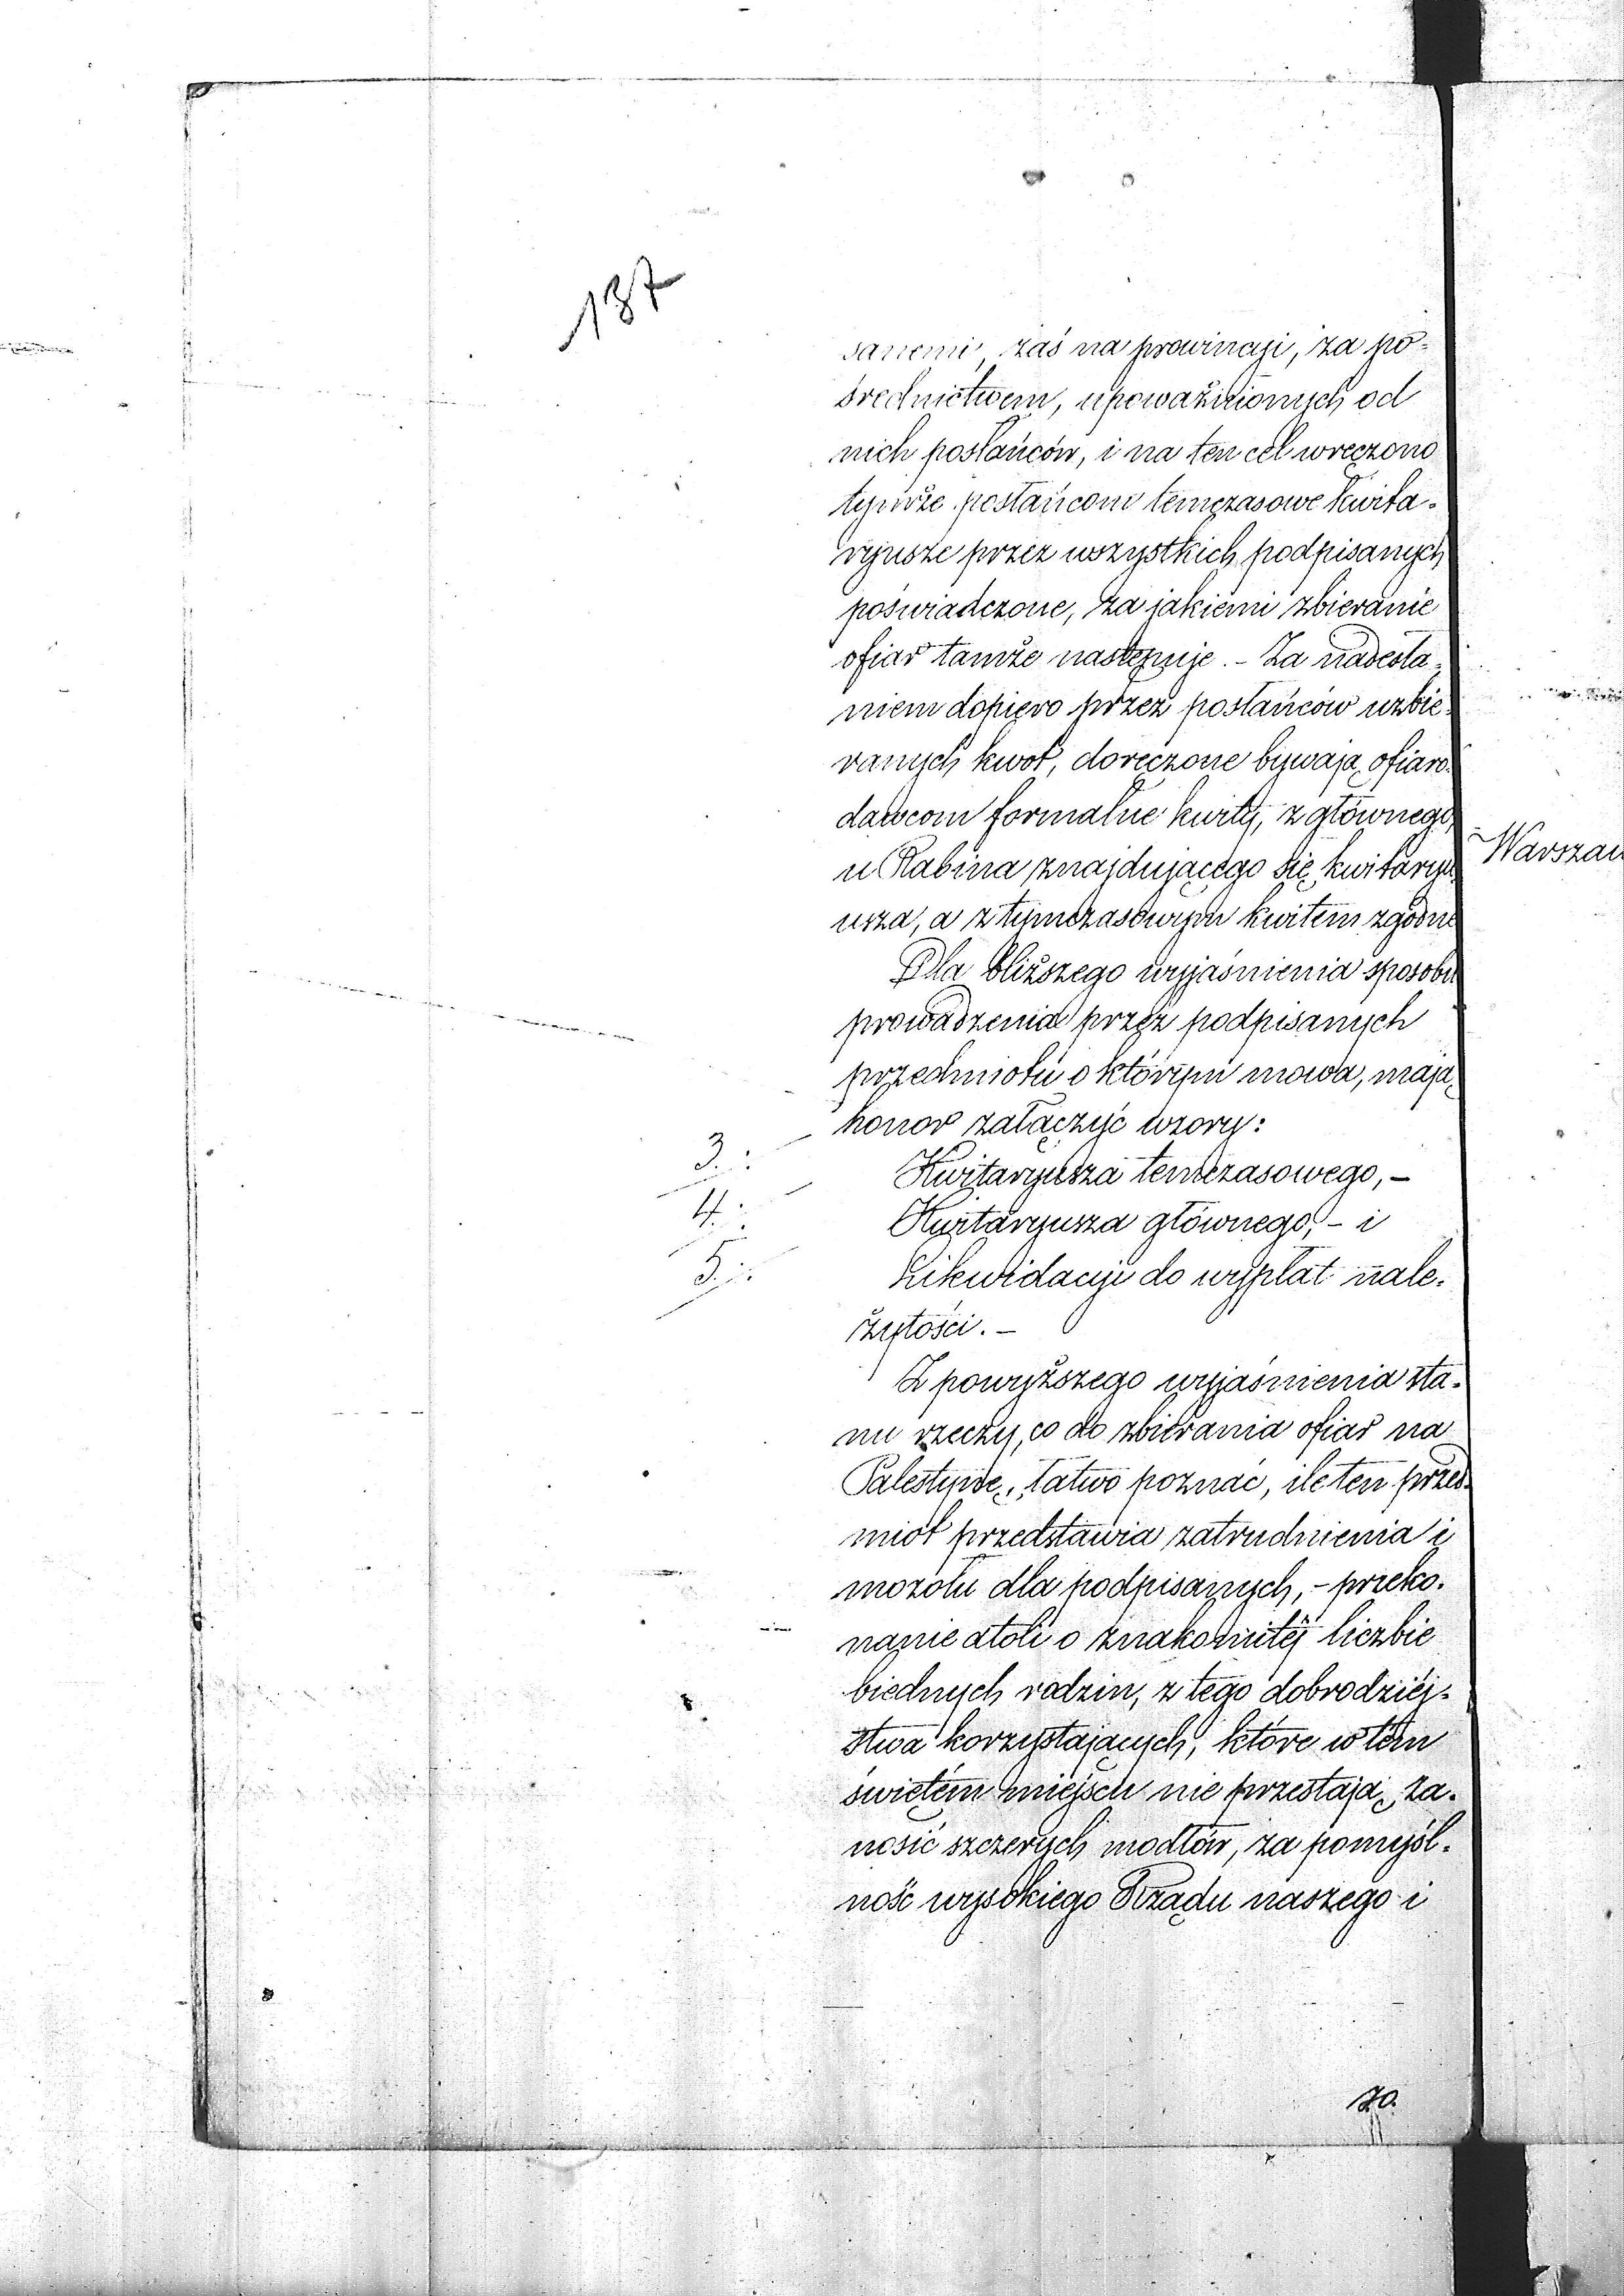 137
sanemi, zaś na prowincyi, za po-
średnictwem, upoważnionych od
nich posłańców, i na ten cel wręczono
tymże posłańcom temczasowe kwita-
ryusze przez wszystkich podpisanych
poświadczone, za jakiemi zbieranie
ofiar tamże następuje. - Za nadesła-
niem dopiero przez posłańców uzbie-
ranych kwot, doręczone bywają ofiaro-
dawcom formalne kwity, z głównego,
u Rabina znajdującego się kwitary-
usza, a z tymczasowym kwitem zgodne
Dla bliższego wyjaśnienia sposobu
prowadzenia przez podpisanych
przedmiotu o którym mowa, mają
honor załączyć wzory:
3.: Kwitaryusza temczasowego, -
4.: Kwitaryusza głównego, - i
5.: Likwidacyi do wypłat nale-
żytości. -
Z powyższego wyjaśnienia sta-
nu rzeczy, co do zbierania ofiar na
Palestynę, łatwo poznać, ile ten przed-
miot przedstawia zatrudnienia i
mozołu dla podpisanych, - przeko-
nanie atoli o znakomitéj liczbie
biednych rodzin, z tego dobrodziéj-
stwa korzystających, które w tém
świętém miejscu nie przestają za-
nosić szczerych modłów, za pomyśl-
ność wysokiego Rządu naszego i
70.
Warszaw